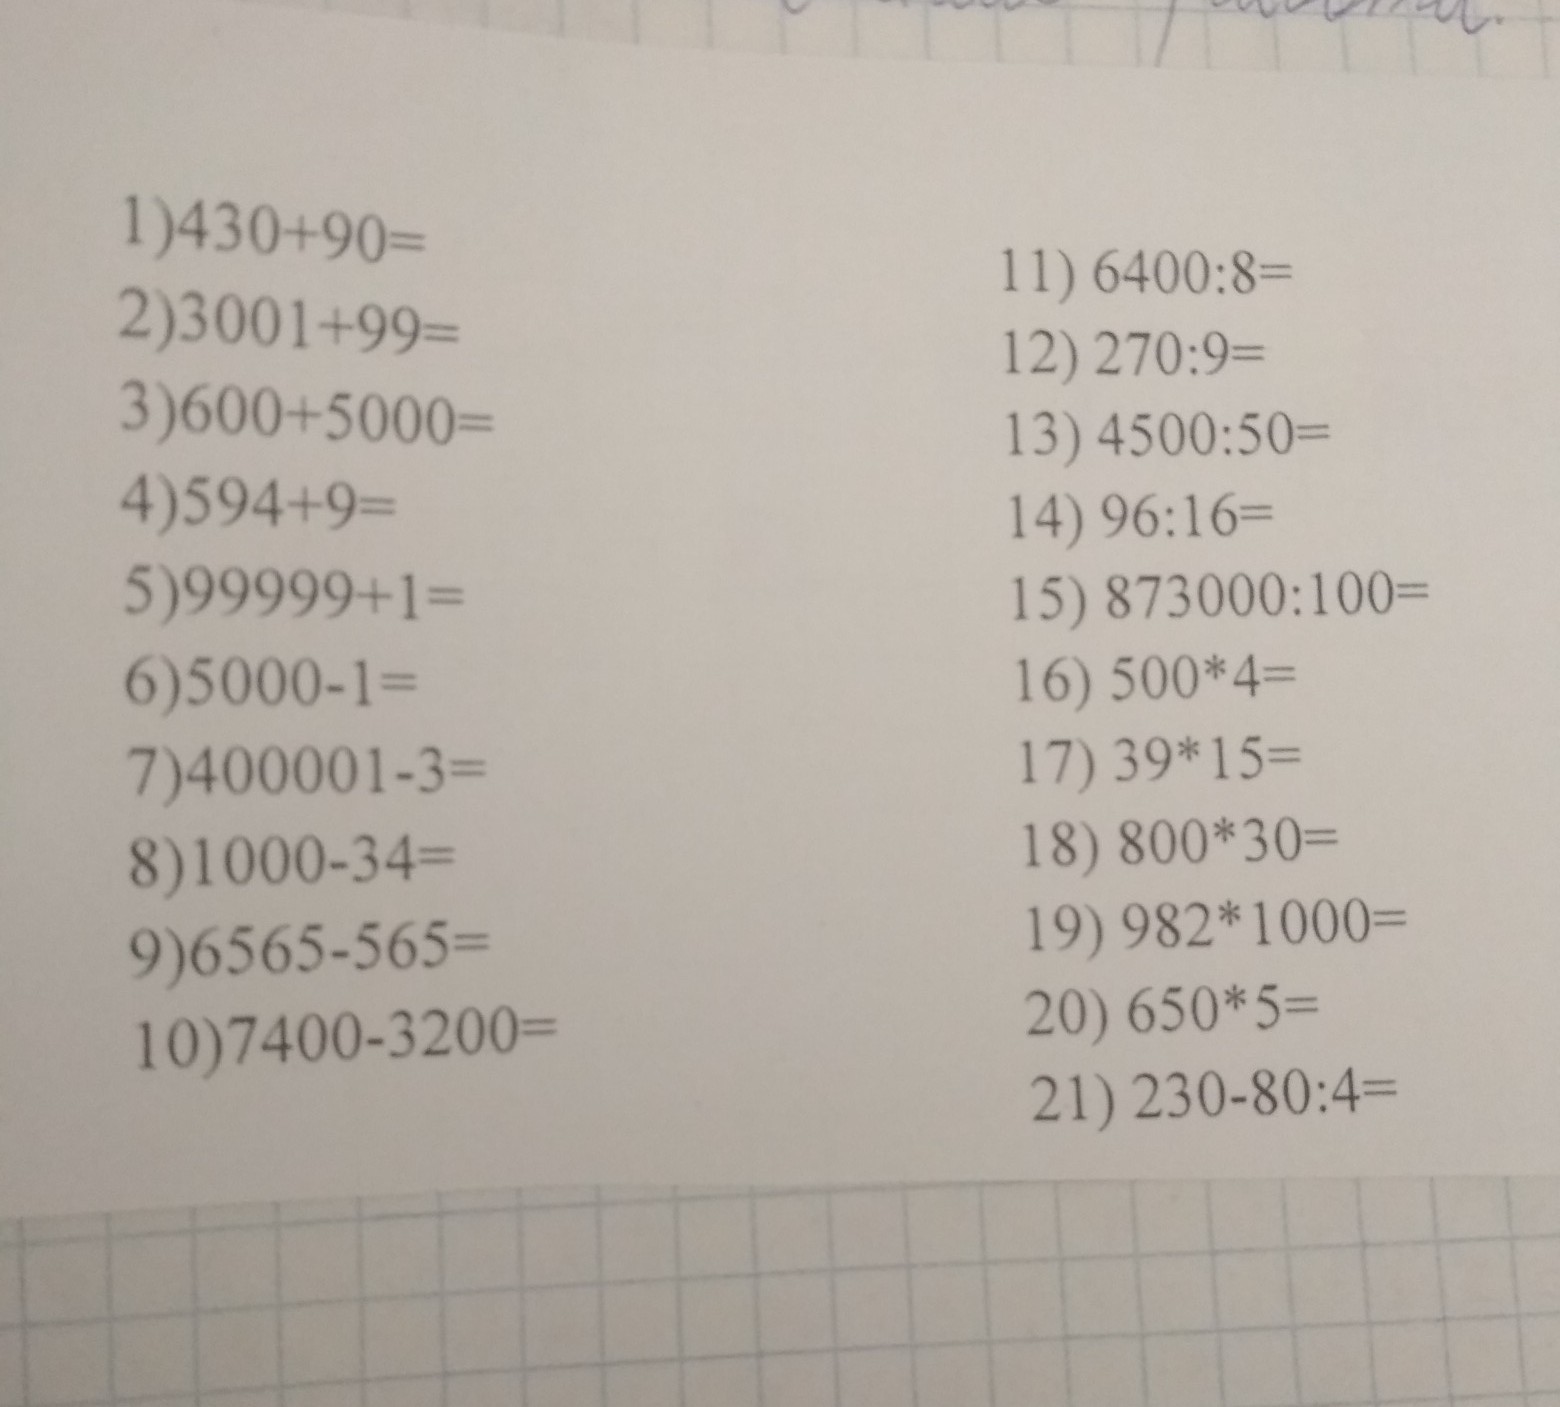 1)430+90=
2)3001+99=
3)600+5000=
4)594+9=
5)99999+1=
6)5000-1=
7)400001-3=
8)1000-34=
9)6565-565=
10)7400-3200=
11) 6400:8=
12) 270:9=
13) 4500:50=
14) 96:16=
15) 873000:100=
16) 500*4=
17) 39*15=
18) 800*30=
19) 982*1000=
20) 650*5=
21) 230-80:4=